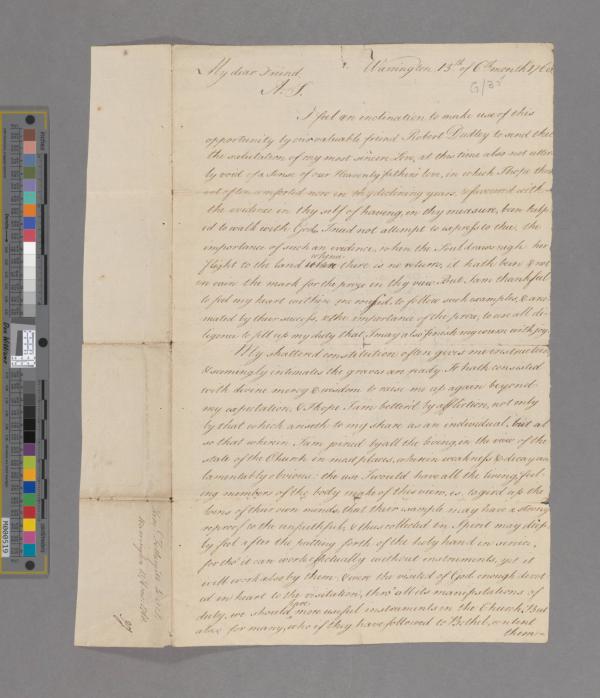 My dear Friend Warrington 13th of 6th month 176
A. S.
G/35
I feel an inclination to make use of this
opportunity by our valuable friend Robert Dudley to send thee
the salutation of my most sincere Love, at this time also not utter-
ly void of a Sense of our Heavenly father's love, in which I hope thou
art often comforted now in thy declining years, & favoured with
the evidence in thy self of having, in thy measure, been help-
ed to walk with God. I need not attempt to express to thee the
importance of such an evidence, when the Soul draws nigh her
flight to the land whence there is no return, it hath been & not
in vain the mark for the prize in thy view. But I am thankful
to feel my heart within me to follow such examples, & ani-
mated by their success, & the importance of the prize, to use all di-
ligence to fill up my duty that I may also finish my course with joy.
My shattered constitution often gives me instruction
& seemingly intimates the graves are ready. It hath consisted
with divine mercy & wisdom to raise me up again beyond
my expectation, & I hope I am better'd by affliction, not only
by that which ariseth to my share as an individual, but al
so that wherein I am joined by all the living, in the view of the
state of the Church in most places, wherein weakness & decay are
lamentably obvious: the use I would have all the living, feel-
ing members of the body make of this view, is, to gird up the
loins of their own minds, that their example may have a strong
reproof to the unfaithful, & thus collected in Spirit may dilig
ly feel after the putting forth of the holy hand in service,
for tho' it can work effectually without instruments, yet it
will work also by them: & were the visited of God enough devot
ed in heart to thy visitation, thro' all its manifestations of
duty, we should have more useful instruments in the Church. But
alas for many, who if they have followed to Bethel, content
them-
Warrington 13 6 mo 176
M000519